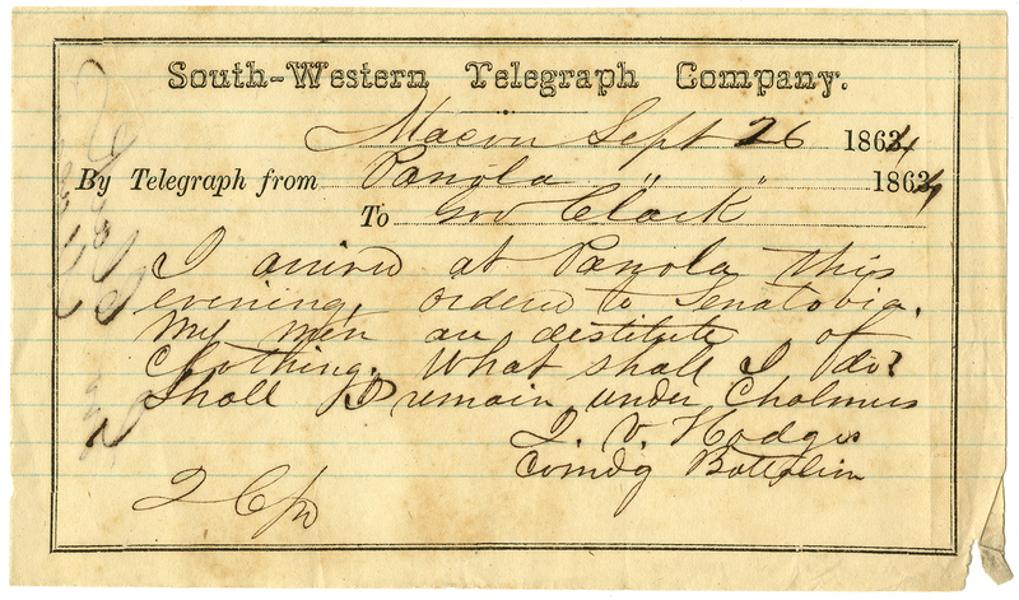 South-Western Telegraph Company.
Macon Sept 26 1864
By Telegraph from Panola " " 1864
To Gov Clark
I arrived at Panola this
evening, ordered to Senatobia.
My men are destitute of
Clothing. What shall I do?
Shall I remain under Chalmers
J. V. Hodges
Comdg Battalion